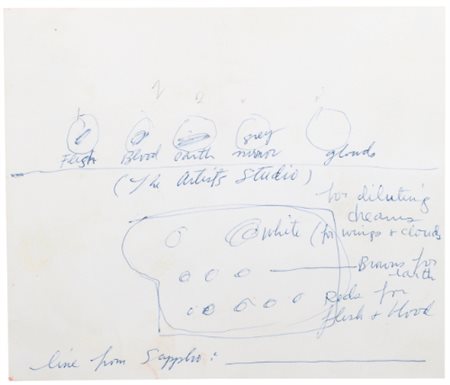 Flesh Blood Earth grey mirror clouds
(The Artist's Studio)
for diluting
dreams
White (for wings + clouds
Browns for
earth
Reds for
flesh + blood
line from Sappho: